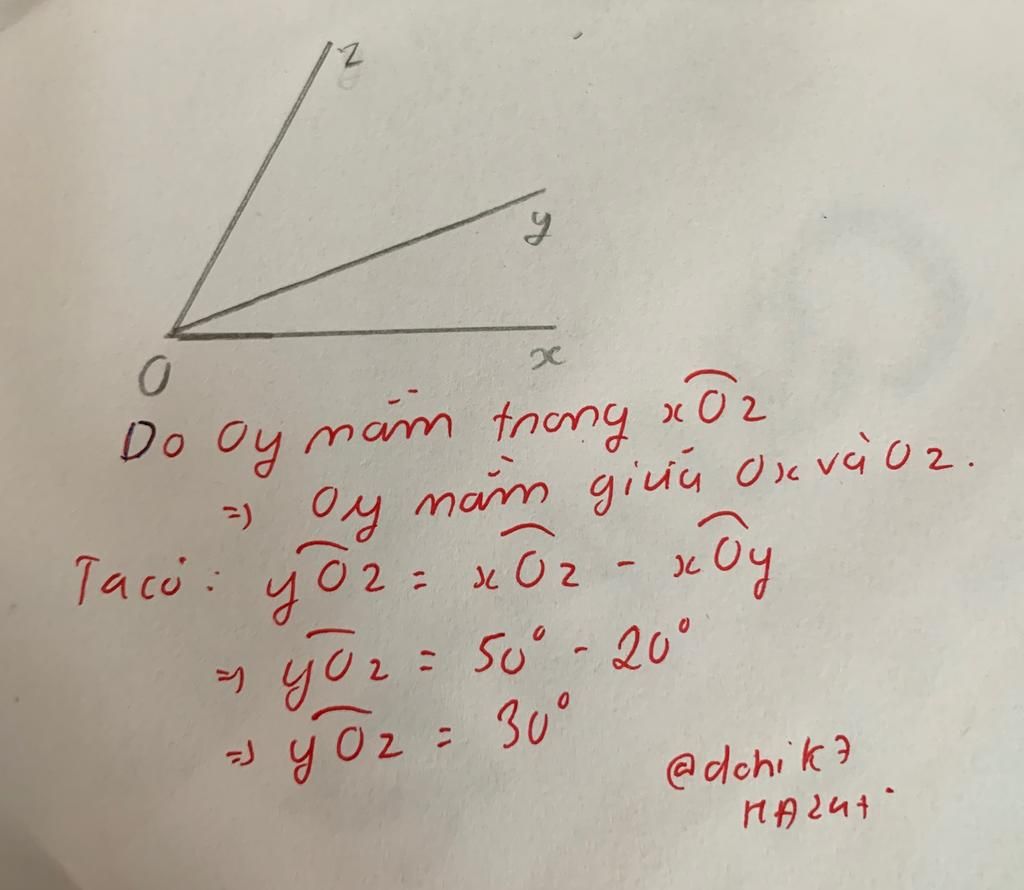 z
y
x
O
Do Oy nằm trong xÔz
=> Oy nằm giữa Ox và Oz.
Ta có: yÔz = xÔz - xÔy
=> yÔz = 50° - 20°
=> yÔz = 30°
@dchik7
MA24+.